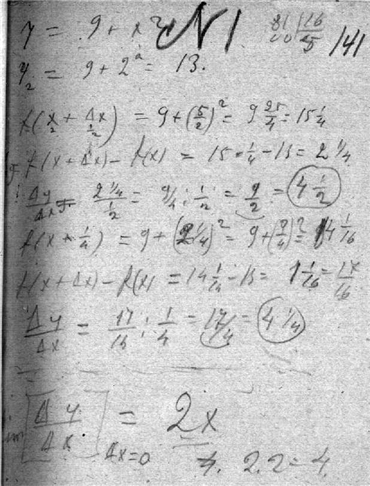 y = 9 + x² N1
81 | 16
80 | 5 / 141
y₂ = 9 + 2² = 13.
f(x + Δx) = 9 + (5/2)² = 9 25/4 = 15 1/4
f(x + Δx) - f(x) = 15 1/4 - 13 = 2 1/4
Δy/Δx = 2 1/4 / 1/2 = 9/4 : 1/2 = 9/2 = 4 1/2
f(x + 1/4) = 9 + (2 1/4)² = 9 + (9/4)² = 14 1/16
f(x + Δx) - f(x) = 14 1/16 - 13 = 1 1/16 = 17/16
Δy/Δx = 17/16 : 1/4 = 17/4 = 4 1/4
[Δy/Δx] Δx=0 = 2x
2.2 = 4.